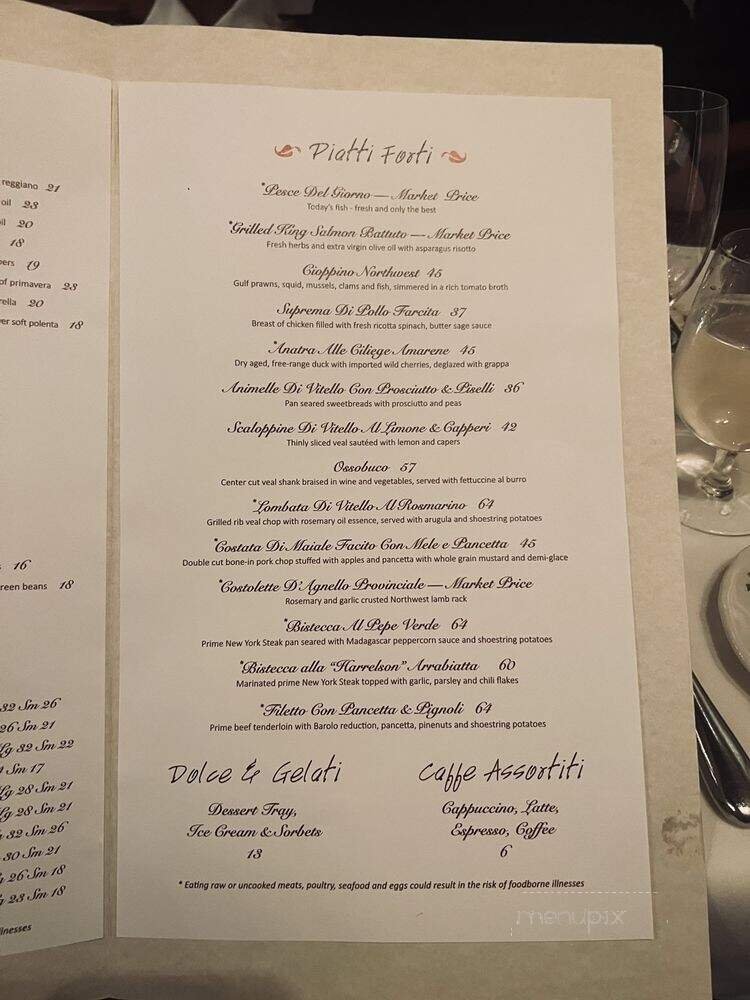 reggiano 21
oil 23
il 20
18
pers 19
of primavera 23
rella 20
ver soft polenta 18
16
reen beans 18
32 Sm 26
26 Sm 21
Lg 32 Sm 22
Sm 17
Lg 28 Sm 21
Lg 28 Sm 21
32 Sm 26
30 Sm 21
26 Sm 18
23 Sm 18
llnesses
Piatti Forti
*Pesce Del Giorno — Market Price
Today's fish - fresh and only the best
*Grilled King Salmon Battuto — Market Price
Fresh herbs and extra virgin olive oil with asparagus risotto
Cioppino Northwest 45
Gulf prawns, squid, mussels, clams and fish, simmered in a rich tomato broth
Suprema Di Pollo Farcita 37
Breast of chicken filled with fresh ricotta spinach, butter sage sauce
*Anatra Alle Ciliege Amarene 45
Dry aged, free-range duck with imported wild cherries, deglazed with grappa
Animelle Di Vitello Con Prosciutto & Piselli 36
Pan seared sweetbreads with prosciutto and peas
Scaloppine Di Vitello Al Limone & Capperi 42
Thinly sliced veal sautéed with lemon and capers
Ossobuco 57
Center cut veal shank braised in wine and vegetables, served with fettuccine al burro
*Lombata Di Vitello Al Rosmarino 64
Grilled rib veal chop with rosemary oil essence, served with arugula and shoestring potatoes
*Costata Di Maiale Facito Con Mele e Pancetta 45
Double cut bone-in pork chop stuffed with apples and pancetta with whole grain mustard and demi-glace
*Costolette D'Agnello Provinciale — Market Price
Rosemary and garlic crusted Northwest lamb rack
*Bistecca Al Pepe Verde 64
Prime New York Steak pan seared with Madagascar peppercorn sauce and shoestring potatoes
*Bistecca alla "Harrelson" Arrabiatta 60
Marinated prime New York Steak topped with garlic, parsley and chili flakes
*Filetto Con Pancetta & Pignoli 64
Prime beef tenderloin with Barolo reduction, pancetta, pinenuts and shoestring potatoes
Dolce & Gelati
Dessert Tray,
Ice Cream & Sorbets
13
Caffe Assortiti
Cappuccino, Latte,
Espresso, Coffee
6
* Eating raw or uncooked meats, poultry, seafood and eggs could result in the risk of foodborne illnesses
menupix